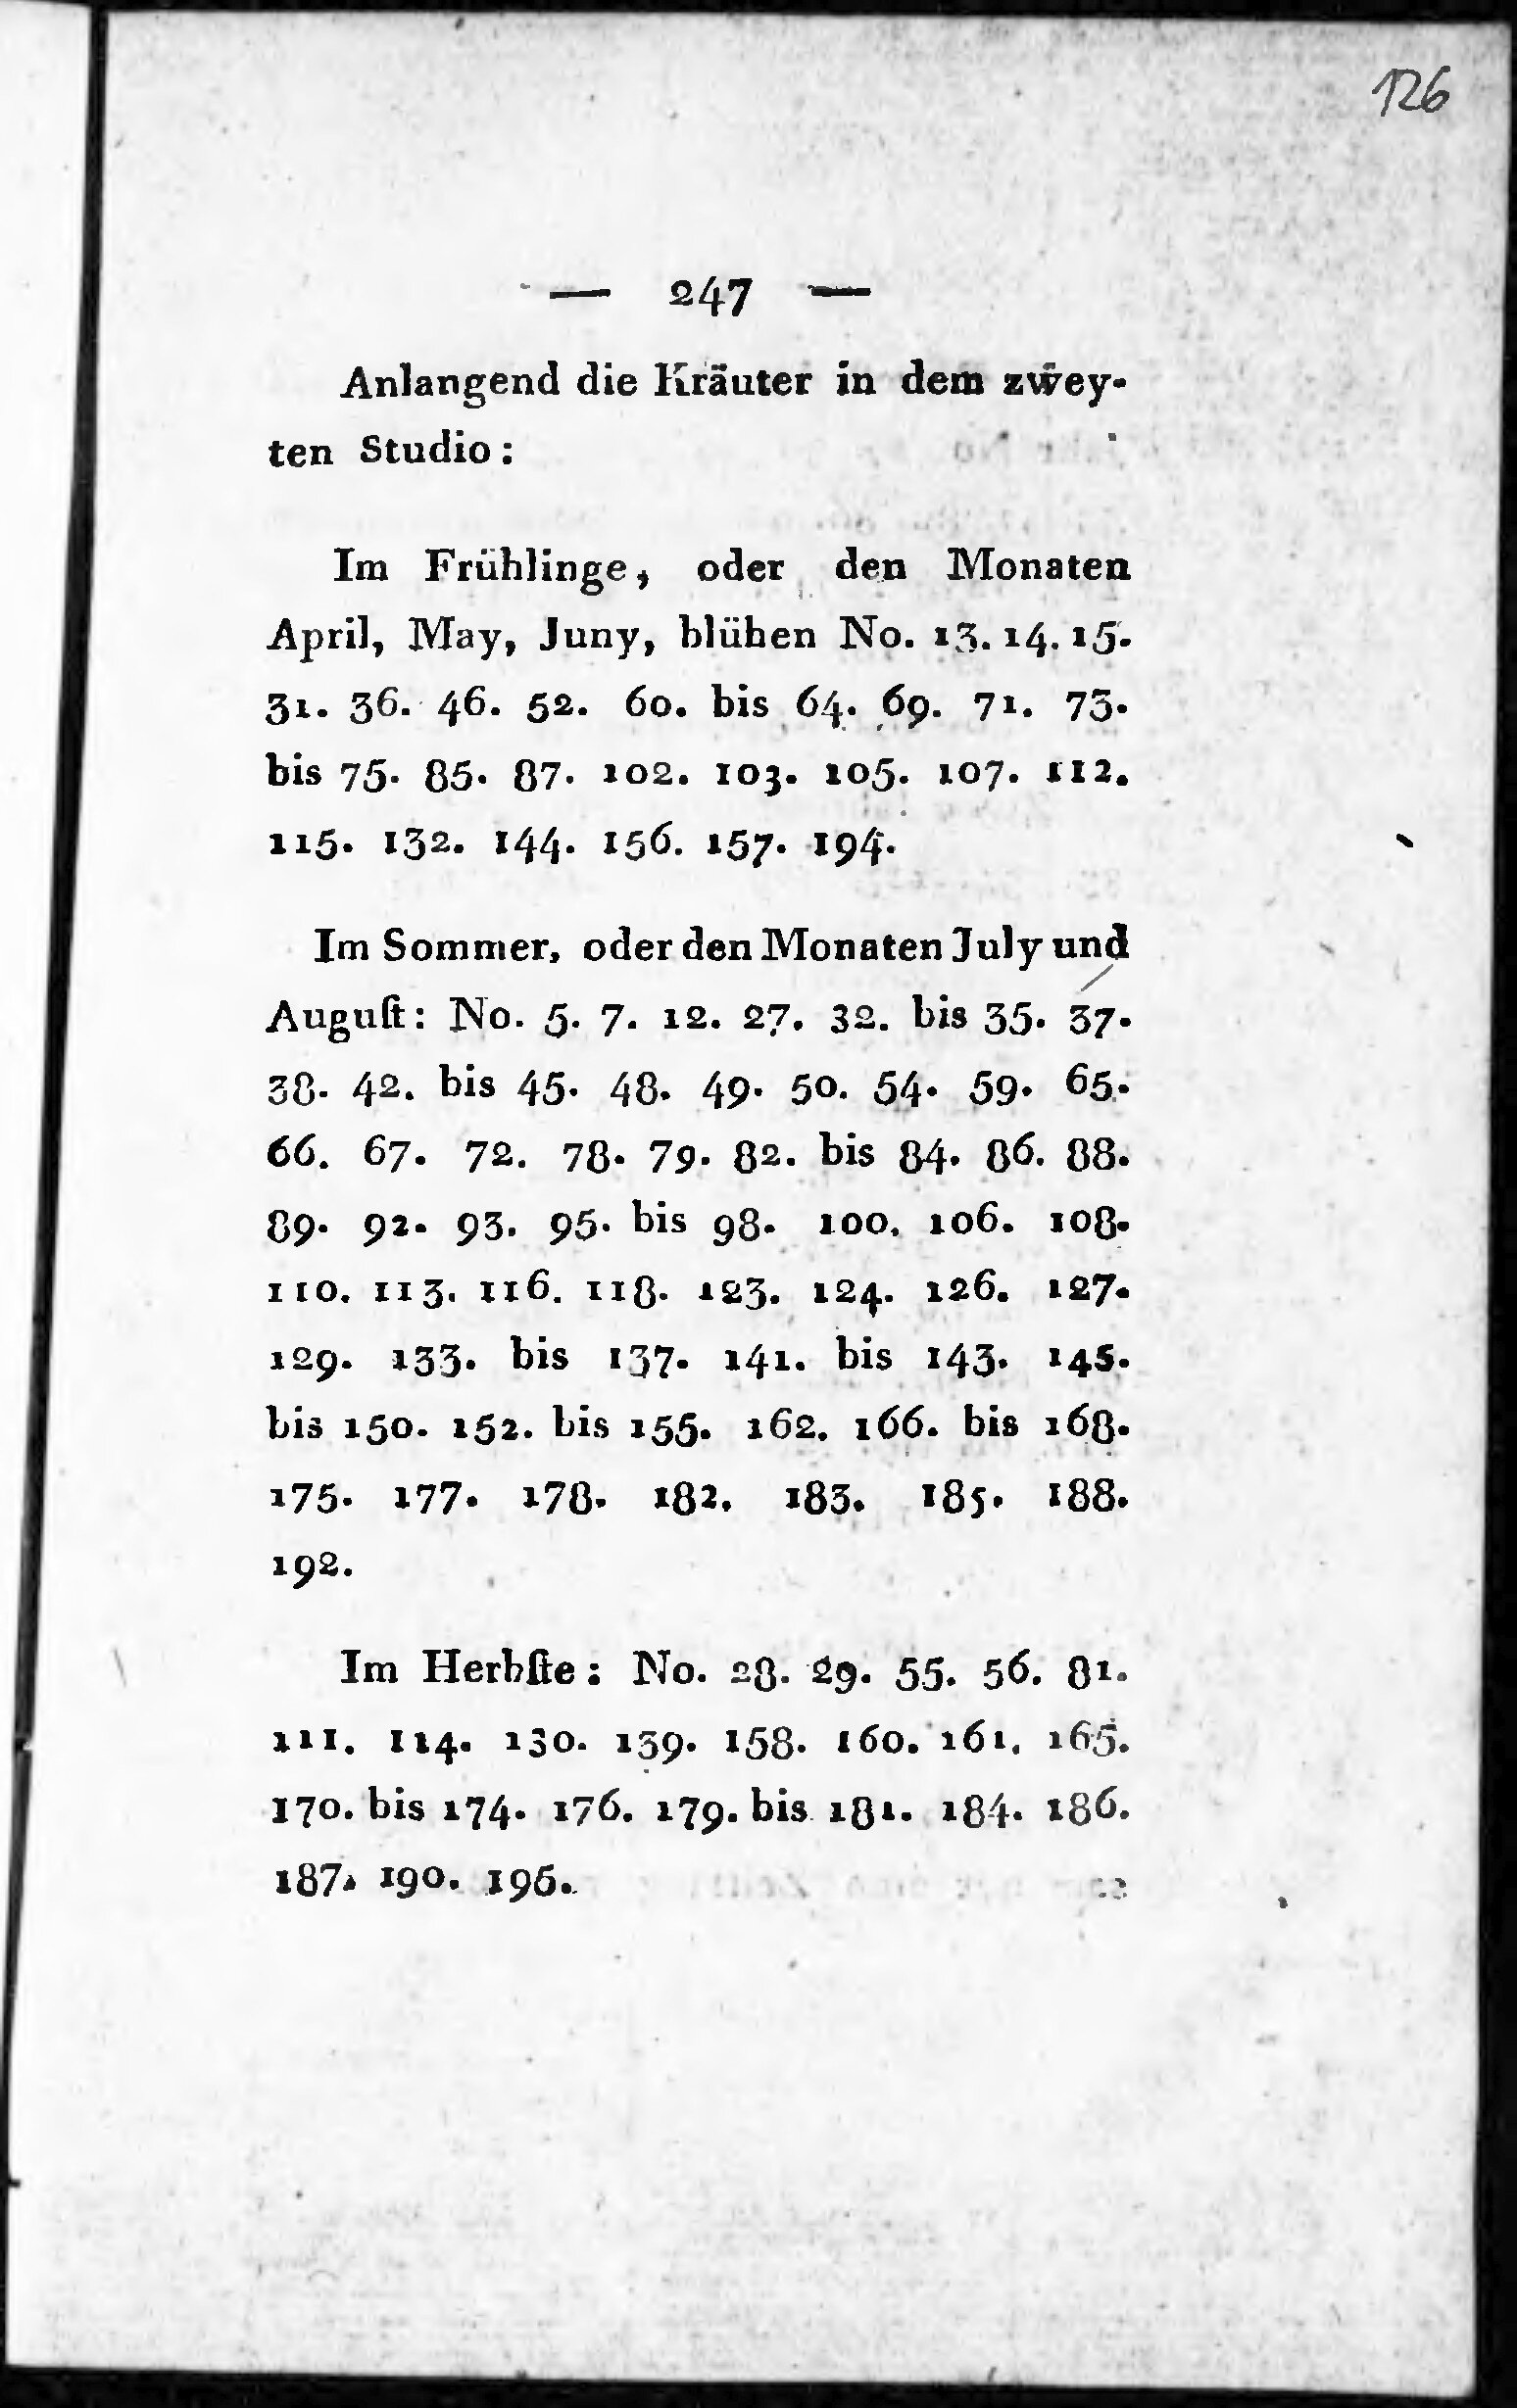 126
— 247 —
Anlangend die Kräuter in dem zwey-
ten Studio:
Im Frühlinge, oder den Monaten
April, May, Juny, blühen No. 13. 14. 15.
31. 36. 46. 52. 60. bis 64. 69. 71. 73.
bis 75. 85. 87. 102. 103. 105. 107. 112.
115. 132. 144. 156. 157. 194.
Im Sommer, oder den Monaten July und
Auguſt: No. 5. 7. 12. 27. 32. bis 35. 37.
38. 42. bis 45. 48. 49. 50. 54. 59. 65.
66. 67. 72. 78. 79. 82. bis 84. 86. 88.
89. 92. 93. 95. bis 98. 100. 106. 108.
110. 113. 116. 118. 123. 124. 126. 127.
129. 133. bis 137. 141. bis 143. 145.
bis 150. 152. bis 155. 162. 166. bis 168.
175. 177. 178. 182. 183. 185. 188.
192.
Im Herbſte: No. 28. 29. 55. 56. 81.
111. 114. 130. 139. 158. 160. 161. 165.
170. bis 174. 176. 179. bis 181. 184. 186.
187. 190. 196.